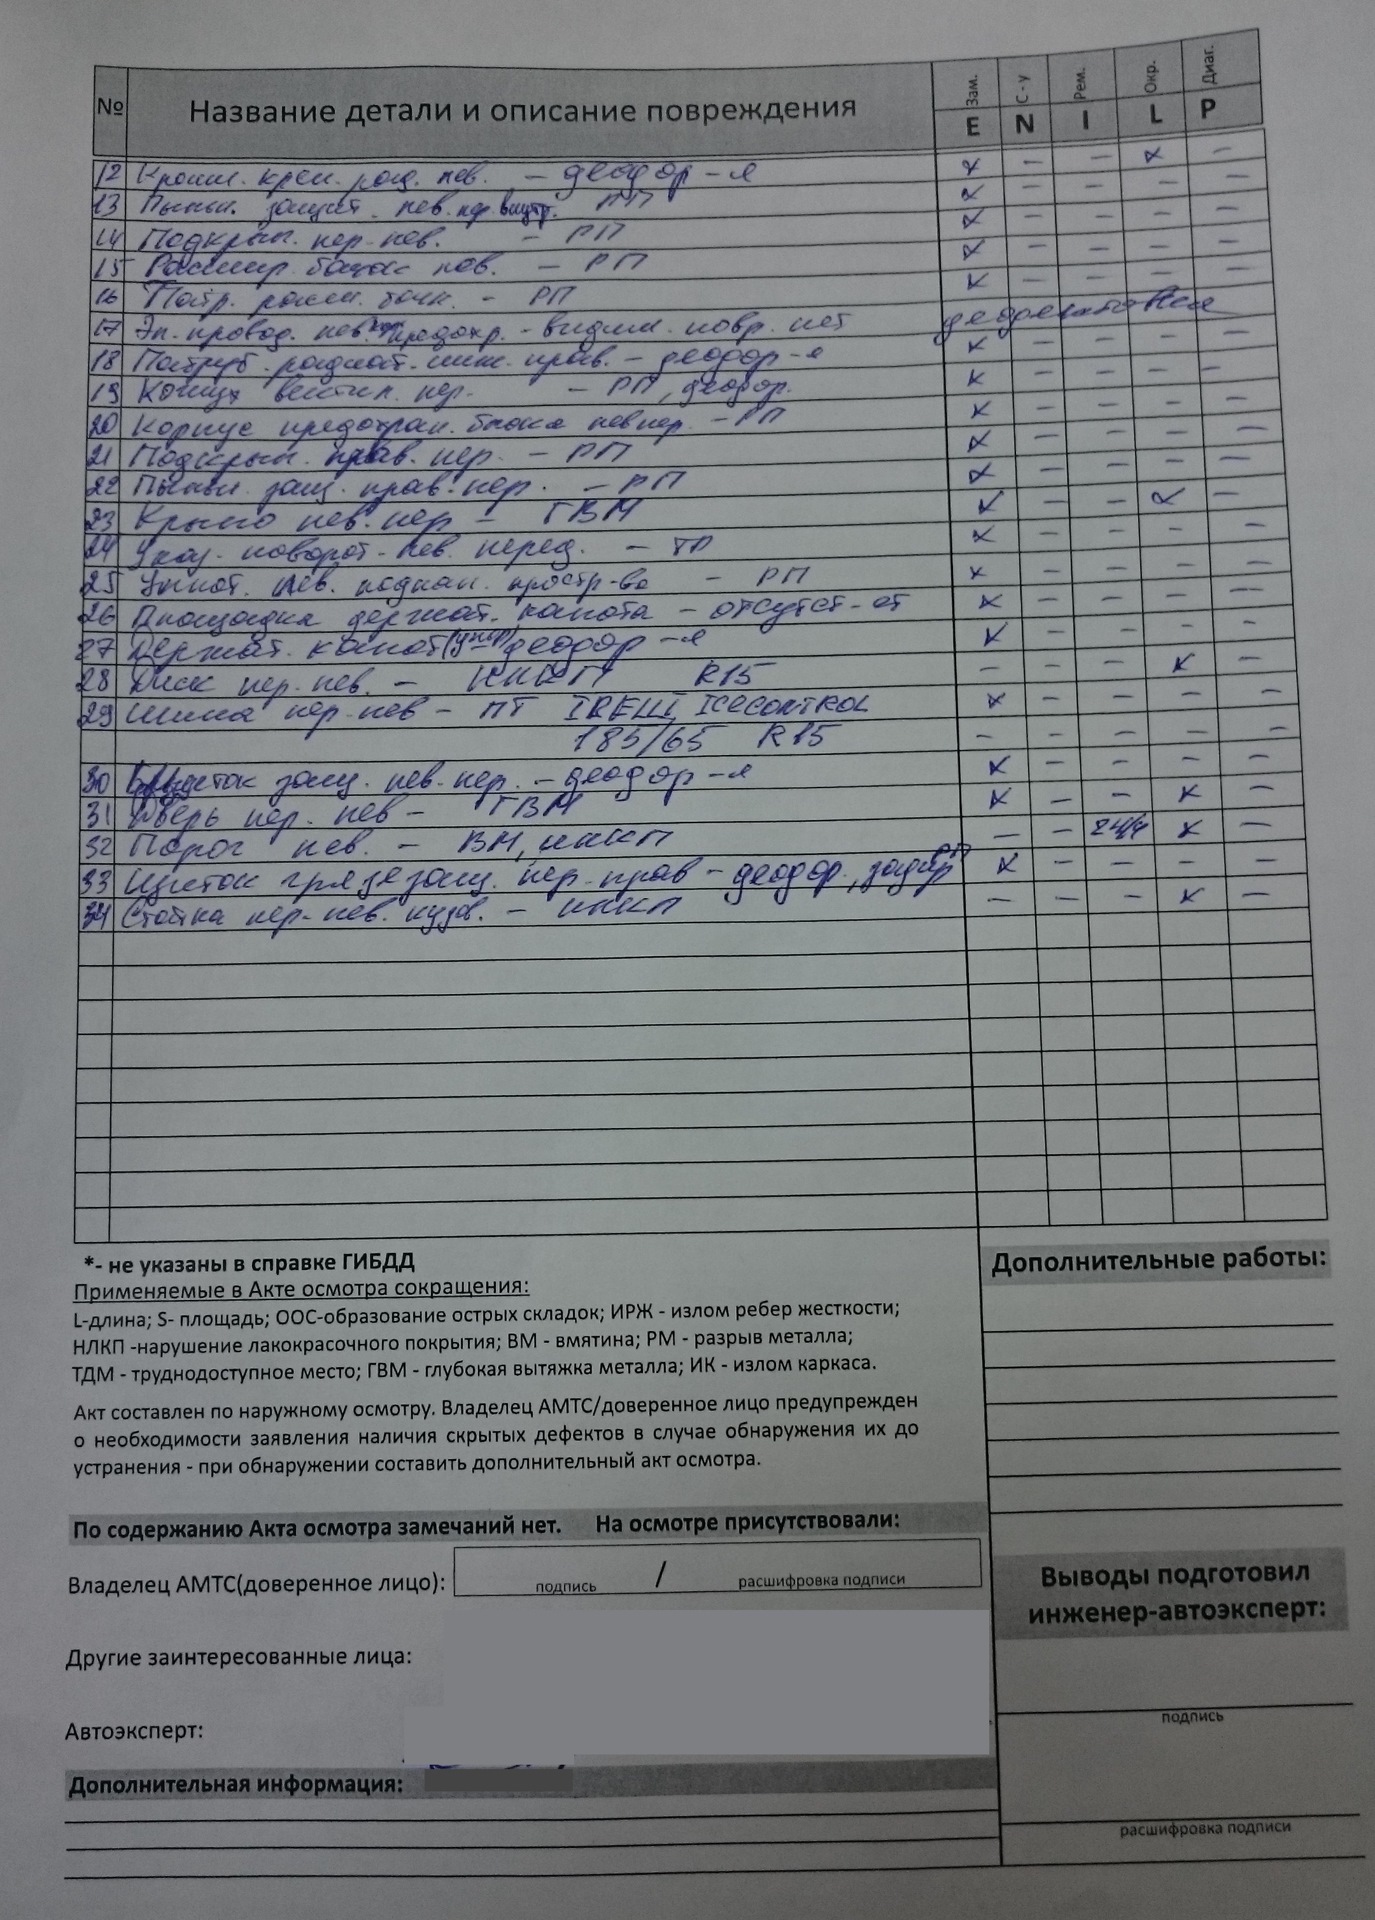 № Название детали и описание повреждения Зам. С - у Рем. Окр. Диаг.
E N I L P
12 лев. - деформ-я x - - x -
13 Пыльн. защит. лев. пер. внутр. РП x - - - -
14 Подкрыл. пер. лев. - РП x - - - -
15 Расшир. бачок лев. - РП x - - - -
16 Патр. расш. бачк. - РП x - - - -
17 Эл. провод. лев. предохр. - видим. повр. нет
18 Патруб. радиат. ниж. прав. - деформ-я x - - - -
19 Кожух вентил. пер. - РП, деформ. x - - - -
20 Корпус предохран. блока лев пер. - РП x - - - -
21 Подкрыл. прав. пер. - РП x - - - -
22 Пыльн. защ. прав. пер. - РП x - - - -
23 Крыло лев. пер - ГВМ x - - x -
24 Указ. поворот. лев. перед. - x - - - -
25 лев. подкап. простр-ва - РП x - - - -
26 Площадка держат. капота - отсутст-ет x - - - -
27 Держат. капот (упор) деформ-я x - - - -
28 Диск пер. лев. - R15 - - - x -
29 Шина пер. лев - ПТ ICECONTROL x - - - -
185/65 R15 - - - - -
30 защ. лев. пер. - деформ-я x - - - -
31 Дверь пер. лев - ГВМ x - - x -
32 Порог лев. - ВМ, НЛКП - - x -
33 Щиток грязезащ. пер. прав - деформ., задир x - - - -
34 Стойка пер. лев. кузов. - НЛКП - - - x -
*- не указаны в справке ГИБДД
Применяемые в Акте осмотра сокращения:
L-длина; S- площадь; ООС-образование острых складок; ИРЖ - излом ребер жесткости;
НЛКП -нарушение лакокрасочного покрытия; ВМ - вмятина; РМ - разрыв металла;
ТДМ - труднодоступное место; ГВМ - глубокая вытяжка металла; ИК - излом каркаса.
Акт составлен по наружному осмотру. Владелец АМТС/доверенное лицо предупрежден
о необходимости заявления наличия скрытых дефектов в случае обнаружения их до
устранения - при обнаружении составить дополнительный акт осмотра.
Дополнительные работы:
По содержанию Акта осмотра замечаний нет. На осмотре присутствовали:
Владелец АМТС(доверенное лицо):
подпись / расшифровка подписи
Другие заинтересованные лица:
Автоэксперт:
Дополнительная информация:
Выводы подготовил
инженер-автоэксперт:
подпись
расшифровка подписи